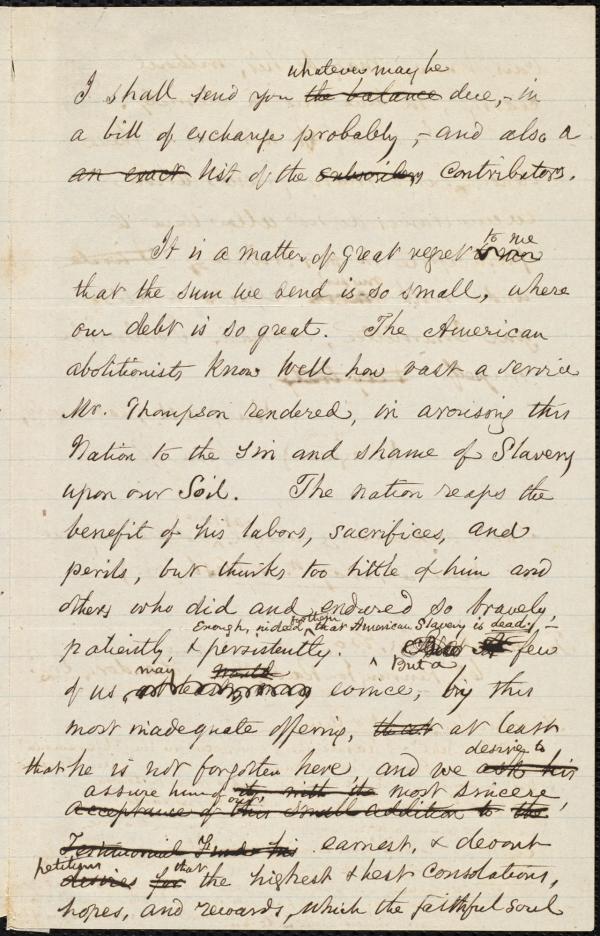 whatever may be
I shall send you the balance due,- in
a bill of exchange probably,- and also a
an exact list of the subscribers contributors.
to me
It is a matter of great regret
that the sum we send is so small, where
our debt is so great. The American
abolitionists know well how vast a service
Mr. Thompson rendered, in arousing this
Nation to the sin and shame of Slavery
upon our Soil. The nation reaps the
benefit of his labors, sacrifices, and
perils, but thinks too little of him and
others who did and endured so bravely,-
Enough, indeed, for them that American Slavery is dead;-
patiently, & persistently. But a few
may would
of us evince, by this
most inadequate offering, that at least
desire to
that he is not forgotten here, and we ask his
assure him of with the most sincere,
our
acceptance of this small addition to the
Testimonial Fund his earnest, & devout
petitions that
desires for the highest & best Consolations,
hopes, and rewards, which the faithful soul